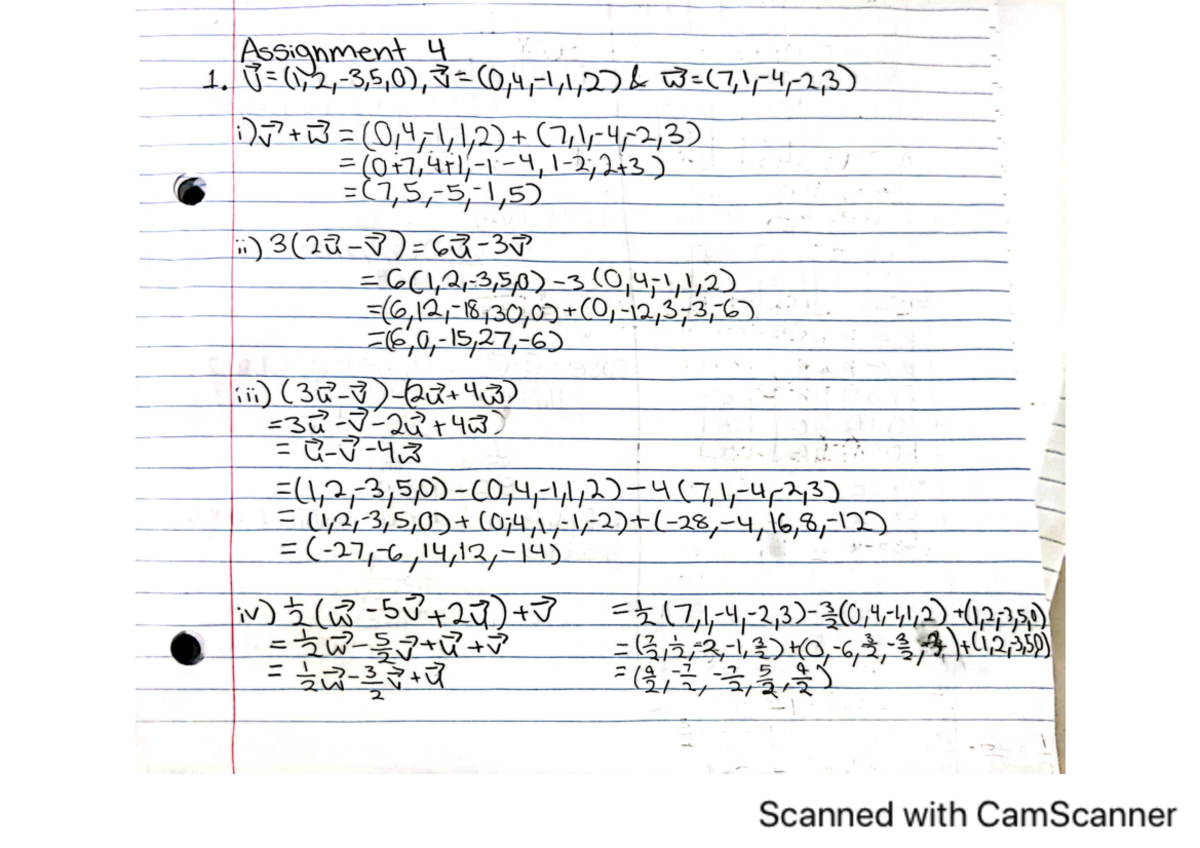 Assignment 4
1. u⃗=(1,2,-3,5,0), v⃗=(0,4,-1,1,2) & w⃗=(7,1,-4,-2,3)
i) v⃗+w⃗ = (0,4,-1,1,2) + (7,1,-4,-2,3)
= (0+7,4+1,-1-4,1-2,2+3)
= (7,5,-5,-1,5)
ii) 3(2u⃗-v⃗) = 6u⃗-3v⃗
= 6(1,2,-3,5,0) - 3(0,4,-1,1,2)
=(6,12,-18,30,0)+(0,-12,3,-3,-6)
=(6,0,-15,27,-6)
iii) (3u⃗-v⃗)-(2u⃗+4w⃗)
=3u⃗-v⃗-2u⃗+4w⃗)
= u⃗-v⃗-4w⃗
=(1,2,-3,5,0)-(0,4,-1,1,2)-4(7,1,-4,-2,3)
= (1,2,-3,5,0)+(0,4,1,-1,-2)+(-28,-4,16,8,-12)
= (-27,-6,14,12,-14)
iv) ½(w⃗-5v⃗+2u⃗)+v⃗
= ½w⃗-5/2v⃗+u⃗+v⃗
= ½w⃗-3/2v⃗+u⃗
=½(7,1,-4,-2,3)-3/2(0,4,-1,1,2)+(1,2,-3,5,0)
=(7/2,½,-2,-1,3/2)+(0,-6,3/2,-3/2,)+(1,2,-3,5,0)
=(9/2,-7/2,-7/2,5/2,)
Scanned with CamScanner